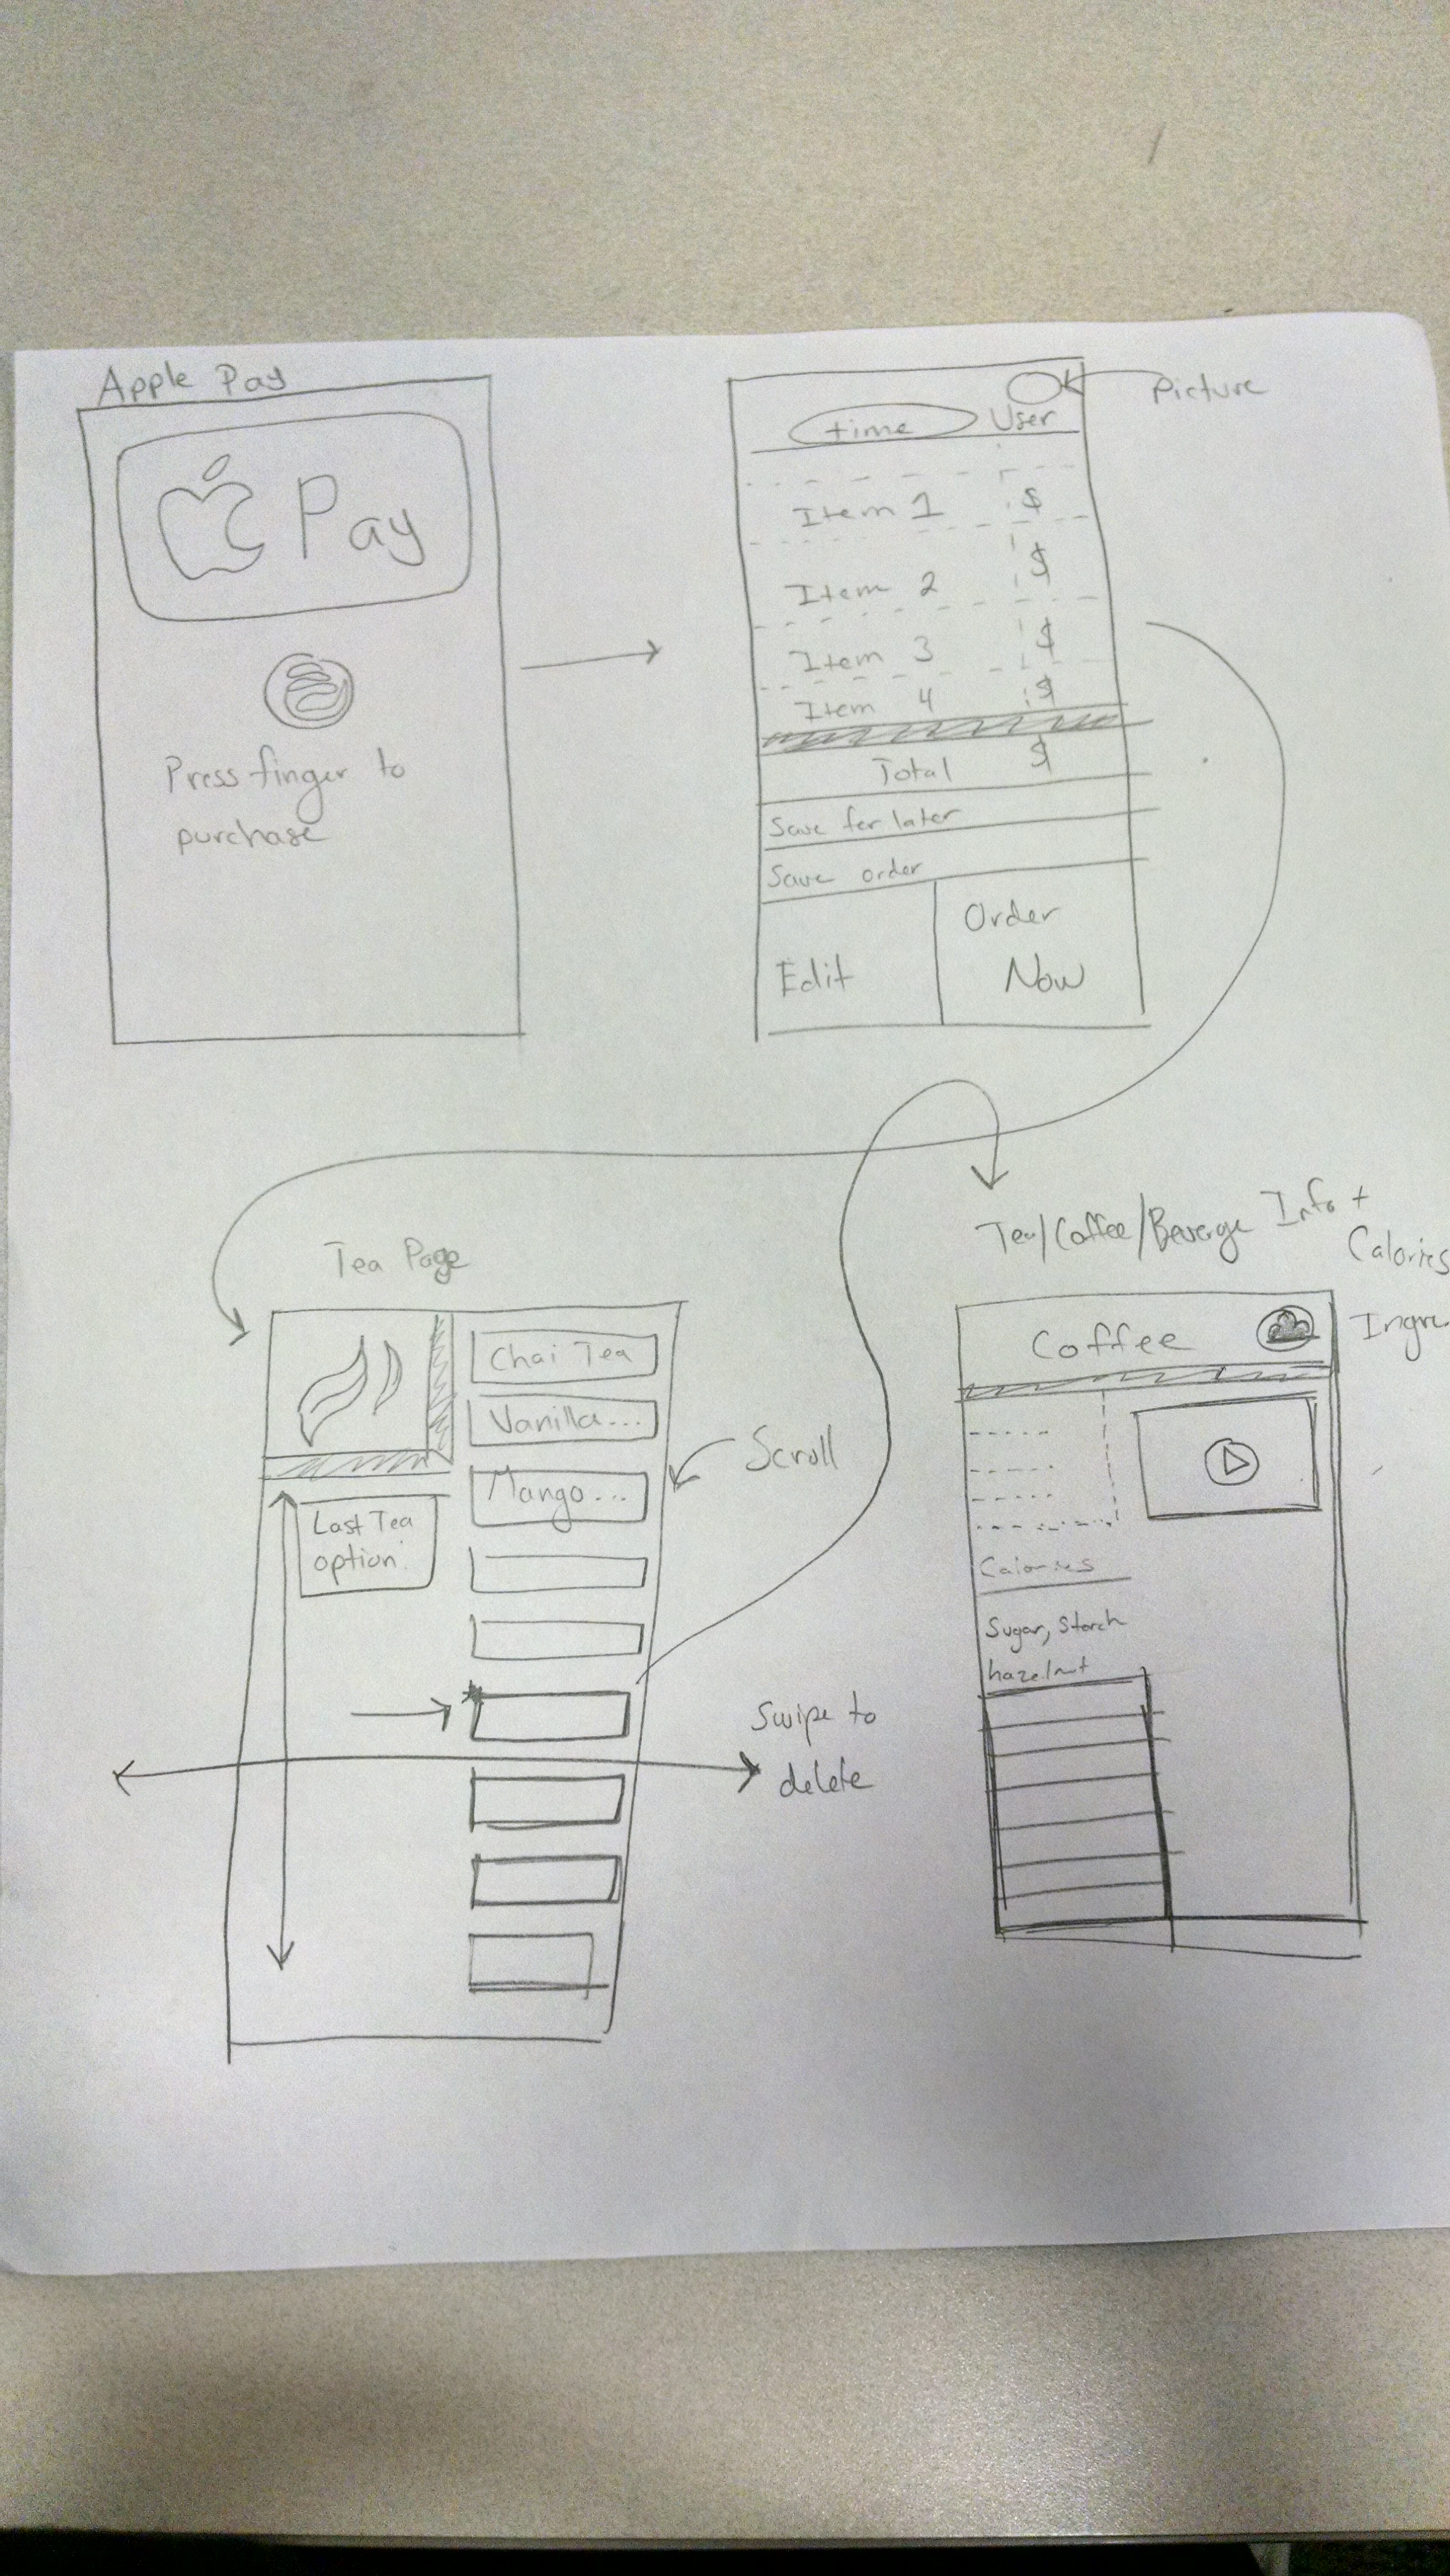 Apple Pay
Pay
Press finger to
purchase
Picture
time User
Item 1 $
Item 2 $
Item 3 $
Item 4 $
Total $
Save for later
Save order
Edit
Order
Now
Tea Page
Chai Tea
Vanilla...
Mango...
Scroll
Last Tea
option
Swipe to
delete
Tea/Coffee/Beverage Info +
Calories
Ingre
Coffee
Calories
Sugar, Starch
hazelnut